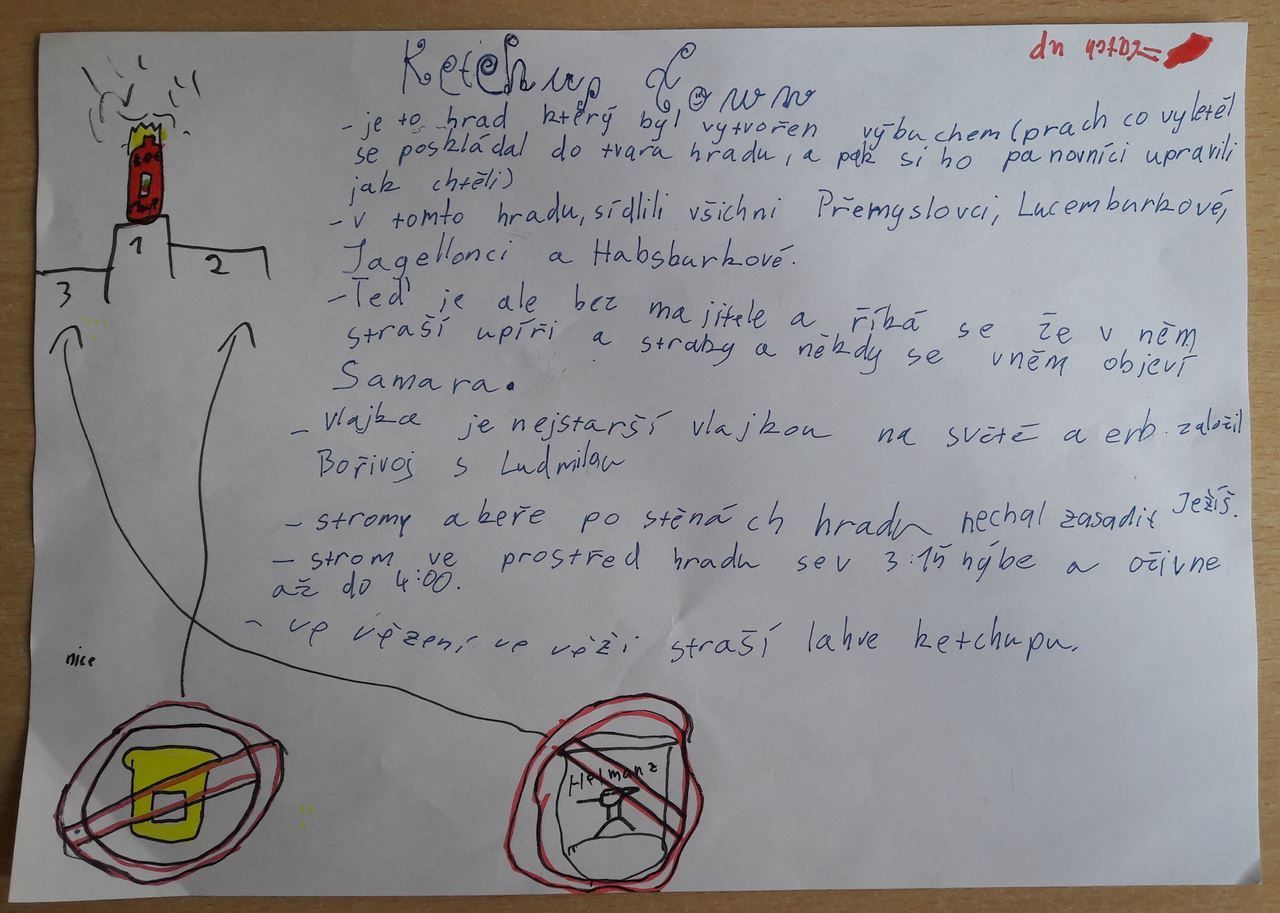 Ketchup Town
- je to hrad který byl vytvořen výbuchem (prach co vyletěl
se poskládal do tvara hradu, a pak si ho panovníci upravili
jak chtěli)
- v tomto hradu, sídlili všichni Přemyslovci, Lucemburkové,
Jagellonci a Habsburkové.
- Teď je ale bez majitele a říká se že v něm
straší upíři a straby a někdy se vněm objeví
Samara.
- vlajka je nejstarší vlajkou na světě a erb založil
Bořivoj s Ludmilou
- stromy a keře po stěnách hradu nechal zasadit Ježíš.
- strom ve prostřed hradu se v 3:15 hýbe a oživne
až do 4:00.
- ve vězení ve věži straší lahve ketchupu.
1
2
3
nice
Helmanz